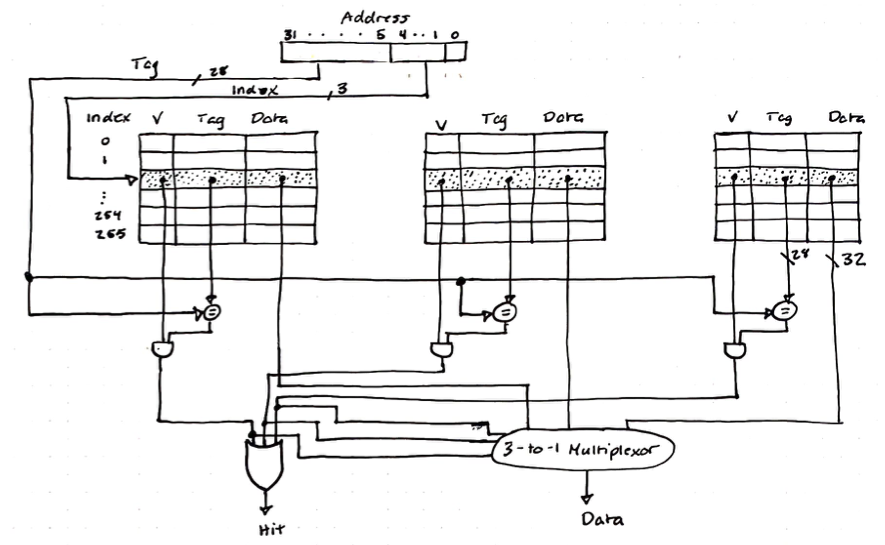 Address
31 . . . . . 5 4 . . 1 0
Tag
28
Index
3
Index V Tag Data
0
1
:
254
255
V Tag Data
V Tag Data
28
32
=
=
=
3-to-1 Multiplexor
Hit
Data